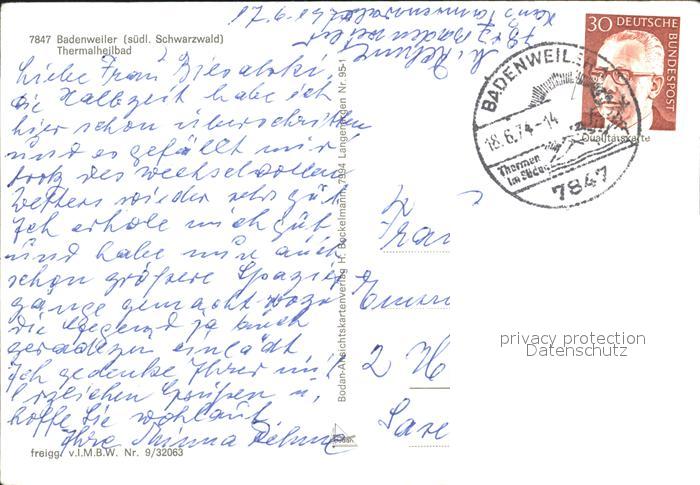 7847 Badenweiler (südl. Schwarzwald)
Thermalheilbad
Liebe Frau
die Halbzeit habe ich
hier schon überschritten
und es gefällt mir
trotz des wechselvollen
Wetters wieder sehr gut.
Ich erhole mich gut
und habe nun auch
schon größere Spazier
gänge gemacht wozu
die Gegend ja auch
geradezu einlädt.
Ich gedenke Ihrer mit
herzlichen Grüßen u,
hoffe Sie wohlauf
Ihre Minna
freigg. v.I.M.B.W. Nr. 9/32063
Bodan-Ansichtskartenverlag H. Bockelmann, 7994 Langenargen Nr. 95-1
7847 Badenweiler
30 DEUTSCHE BUNDESPOST
BADENWEILER
18.6.74-14
Thermen
im Süden
7847
Qualitätskarte
Frau
2 H
privacy protection
Datenschutz